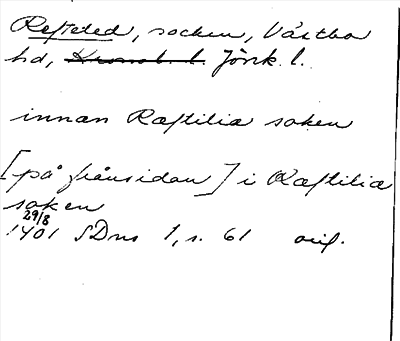 Refteled, socken, Västbo
hd, Kronob. l. Jönk. l.
innan Ræftilia soken
[på frånsidan] i Ræftilia
soken
29/8
1401 SDns 1, s. 61 orig.